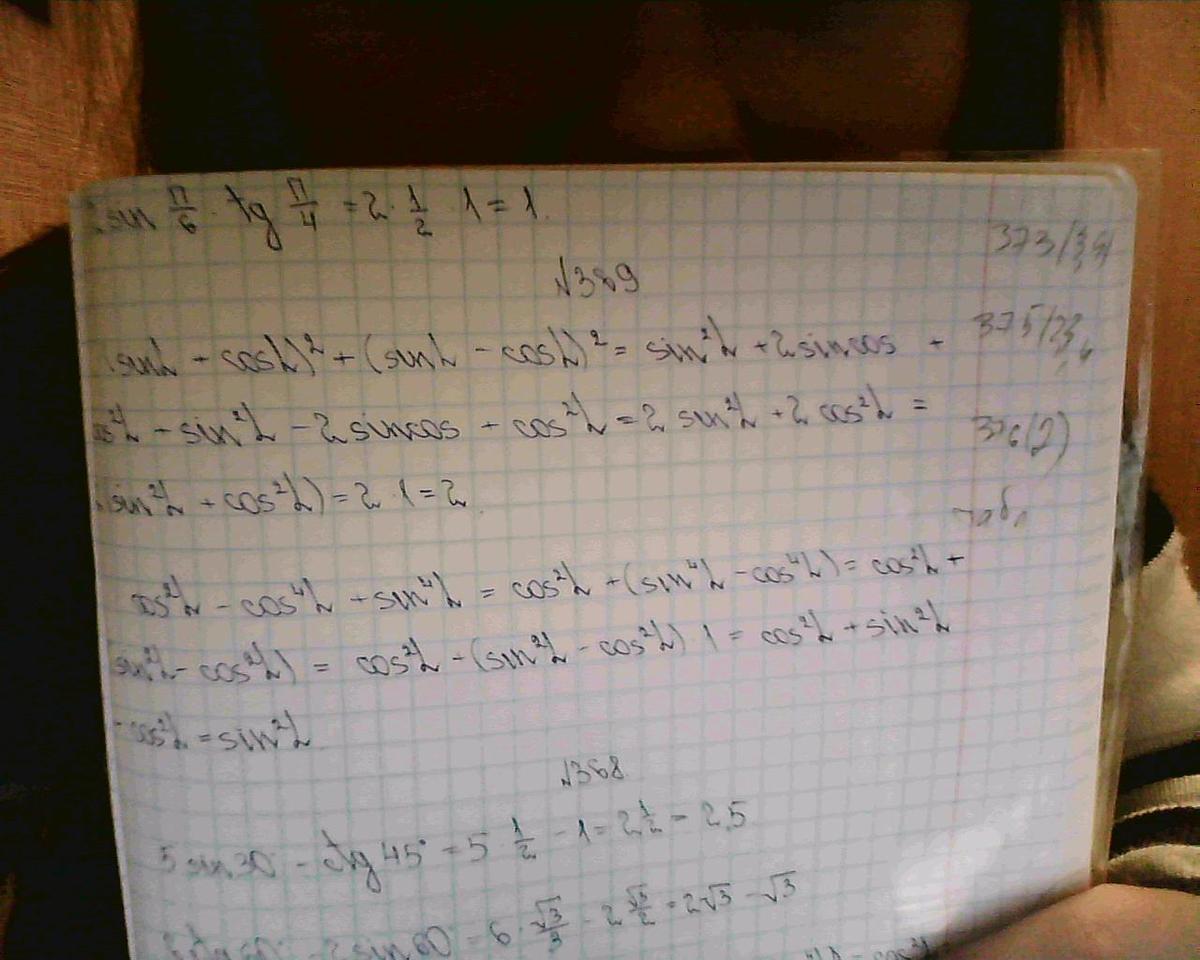 sin π/6 · tg π/4 = 2 · 1/2 · 1 = 1.
373(3,4)
√389
(sinα + cosα)² + (sinα - cosα)² = sin²α + 2sincos +
375(23
cos²α + sin²α - 2sincos + cos²α = 2 sin²α + 2 cos²α =
376(2)
(sin²α + cos²α) = 2 · 1 = 2.
cos²α - cos⁴α + sin⁴α = cos²α + (sin⁴α - cos⁴α) = cos²α +
sin²α - cos²α) = cos²α + (sin²α - cos²α) · 1 = cos²α + sin²α
- cos²α = sin²α.
√368.
5 sin 30 - ctg 45° = 5 · 1/2 - 1 = 2 1/2 = 2,5
- 2 sin 60 = 6 · √3/3 - 2 √3/2 = 2√3 - √3